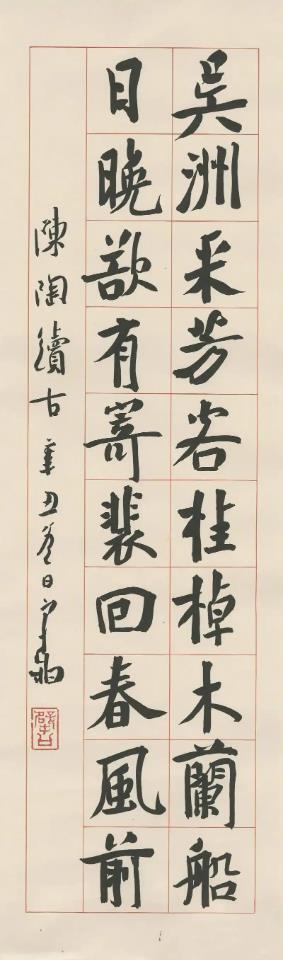 吳洲采芳客桂棹木蘭船
日晚欲有寄裴回春風前
陳陶續古 辛丑春日